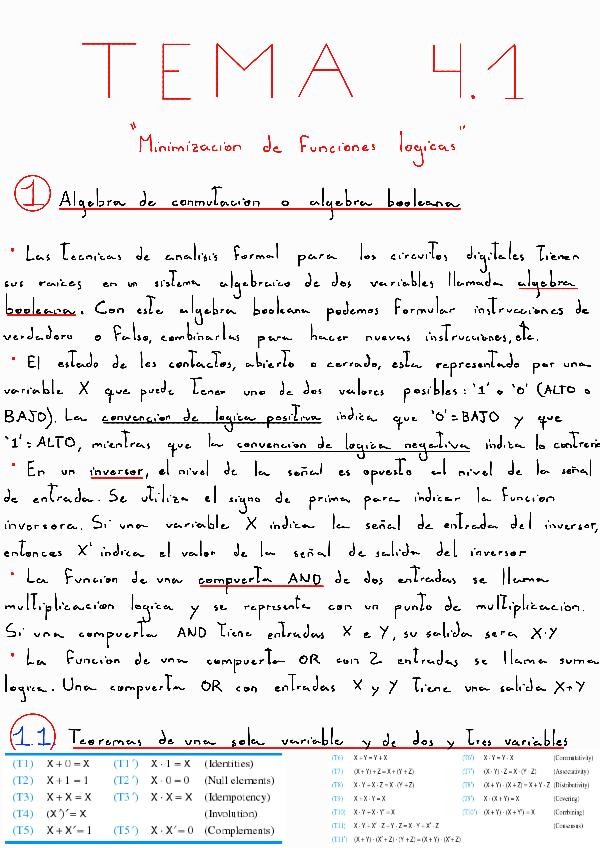 TEMA 4.1
"Minimizacion de funciones logicas"
1 Algebra de conmutacion o algebra booleana
• Las tecnicas de analisis formal para los circuitos digitales tienen
sus raices en un sistema algebraico de dos variables llamada algebra
booleana. Con este algebra booleana podemos formular instrucciones de
verdadero o falso, combinarlas para hacer nuevas instrucciones, etc.
• El estado de les contactos, abierto o cerrado, esta representado por una
variable X que puede tener uno de dos valores posibles: '1' o '0' (ALTO o
BAJO). La convencion de logica positiva indica que '0'=BAJO y que
'1'= ALTO, mientras que la convencion de logica negativa indica lo contrario
• En un inversor, el nivel de la señal es opuesto al nivel de la señal
de entrada. Se utiliza el signo de prima para indicar la funcion
inversora. Si una variable X indica la señal de entrada del inversor,
entonces X' indica el valor de la señal de salida del inversor
• La funcion de una compuerta AND de dos entradas se llama
multiplicacion logica y se representa con un punto de multiplicacion.
Si una compuerta AND tiene entradas X e Y, su salida sera X·Y
• La funcion de una compuerta OR con 2 entradas se llama suma
logica. Una compuerta OR con entradas X y Y tiene una salida X+Y
1.1 Teoremas de una sola variable y de dos y tres variables
(T1) X + 0 = X (T1') X · 1 = X (Identities)
(T2) X + 1 = 1 (T2') X · 0 = 0 (Null elements)
(T3) X + X = X (T3') X · X = X (Idempotency)
(T4) (X')' = X (Involution)
(T5) X + X' = 1 (T5') X · X' = 0 (Complements)
(T6) X + Y = Y + X (T6') X · Y = Y · X (Commutativity)
(T7) (X + Y) + Z = X + (Y + Z) (T7') (X · Y) · Z = X · (Y · Z) (Associativity)
(T8) X · Y + X · Z = X · (Y + Z) (T8') (X + Y) · (X + Z) = X + Y · Z (Distributivity)
(T9) X + X · Y = X (T9') X · (X + Y) = X (Covering)
(T10) X · Y + X · Y' = X (T10') (X + Y) · (X + Y') = X (Combining)
(T11) X · Y + X' · Z + Y · Z = X · Y + X' · Z (Consensus)
(T11') (X + Y) · (X' + Z) · (Y + Z) = (X + Y) · (X' + Z)